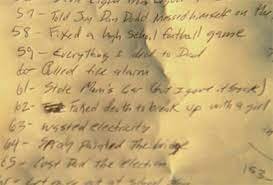 57- Told Joy Don Dodd messed himself on the
58- Fixed a high School football game
59- Everything I did to Dad
60- Pulled fire alarm
61- Stole Mom's car (but I gave it back)
62- Faked death to break up with a girl
63- wasted electricity
64- Spray painted the bridge
65- Cost Dad the election
153